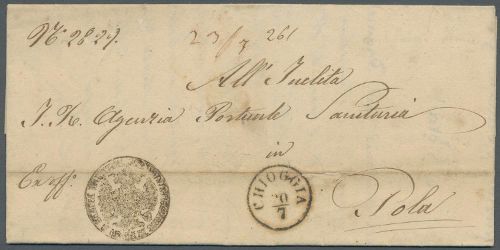 No. 2827. 23/7 261
All' Inclita
I. R. Agenzia Portuale Sanitaria
in
Ex off:
CHIOGGIA
20/7
Pola